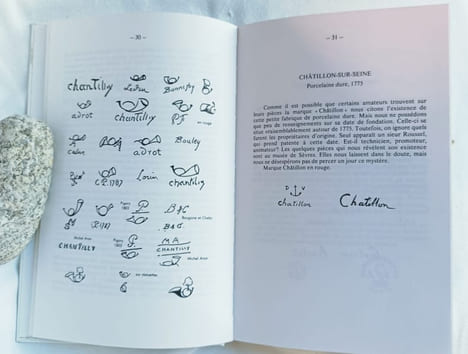 – 30 –
chantilly
adrot
chantilly
P.F.
en rouge
adrot
Bouley
C.P. 1787
Lorin
chantilly
Pigory
1803
P
B&C
Bougone et Chalot
B&C
Michel Aron
CHANTILLY
Pigory
1803
M.A
CHANTILLY
Michel Aron
– 31 –
CHÂTILLON-SUR-SEINE
Porcelaine dure, 1775
Comme il est possible que certains amateurs trouvent sur
leurs pièces la marque « Châtillon » nous citons l'existence de
cette petite fabrique de porcelaine dure. Mais nous ne possédons
que peu de renseignements sur sa date de fondation. Celle-ci se
situe vraisemblablement autour de 1775. Toutefois, on ignore quels
furent les propriétaires d'origine. Seul apparaît un sieur Roussel,
qui prend patente à cette date. Est-il technicien, promoteur,
animateur? Les quelques pièces qui nous révèlent son existence
sont au musée de Sèvres. Elles nous laissent dans le doute, mais
nous ne désespérons pas de percer un jour ce mystère.
Marque Châtillon en rouge.
D V
chatillon
Chatillon